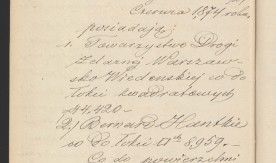 Czerwca 1874 roku,
posiadają:
1. Towarzystwo Drogi
Żelaznej Warszaw-
sko Wiedeńskiej co do
łokci kwadratowych
44,420 —
2.) Bernard Hantkie
co do łokci □ch 5,959. —
Co do powierzchni